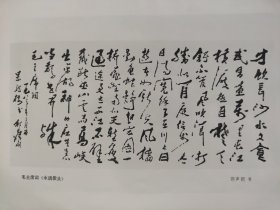 才饮长沙水又食
武昌鱼万里长江
横渡极目楚天
舒不管风吹浪打
胜似闲庭信步今
日得宽余子在川上曰
逝者如斯夫风樯
动龟蛇静起宏图一
桥飞架南北天堑变
通途更立西江石壁
截断巫山云雨高峡
出平湖神女应无恙
当惊世界殊
毛主席词
毛主席词《水调歌头》
书